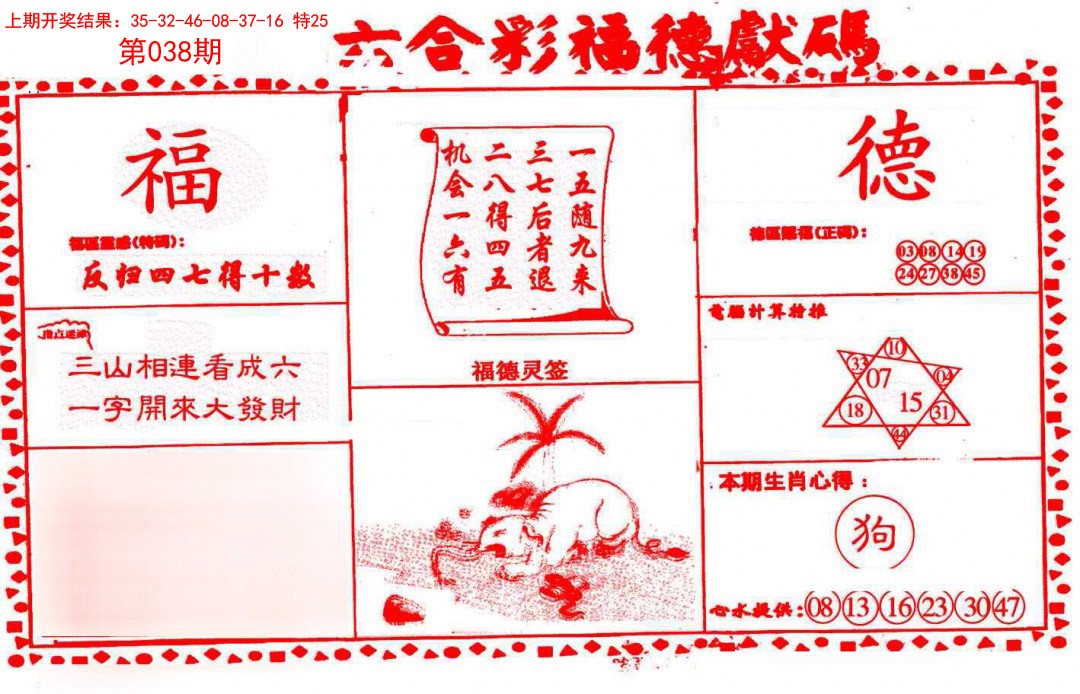 上期开奖结果：35-32-46-08-37-16 特25
第038期
六合彩福德獻碼
福
福區靈感(特碼)：
反归四七得十数
三山相連看成六
一字開來大發財
一五随九来
三七后者退
二八得四五
机会一六有
福德灵签
德
德區賜福(正碼)：
03 08 14 19
24 27 38 45
電腦計算枪推
10
33 04
07
18 15 31
44
本期生肖心得：
狗
心水提供：08 13 16 23 30 47